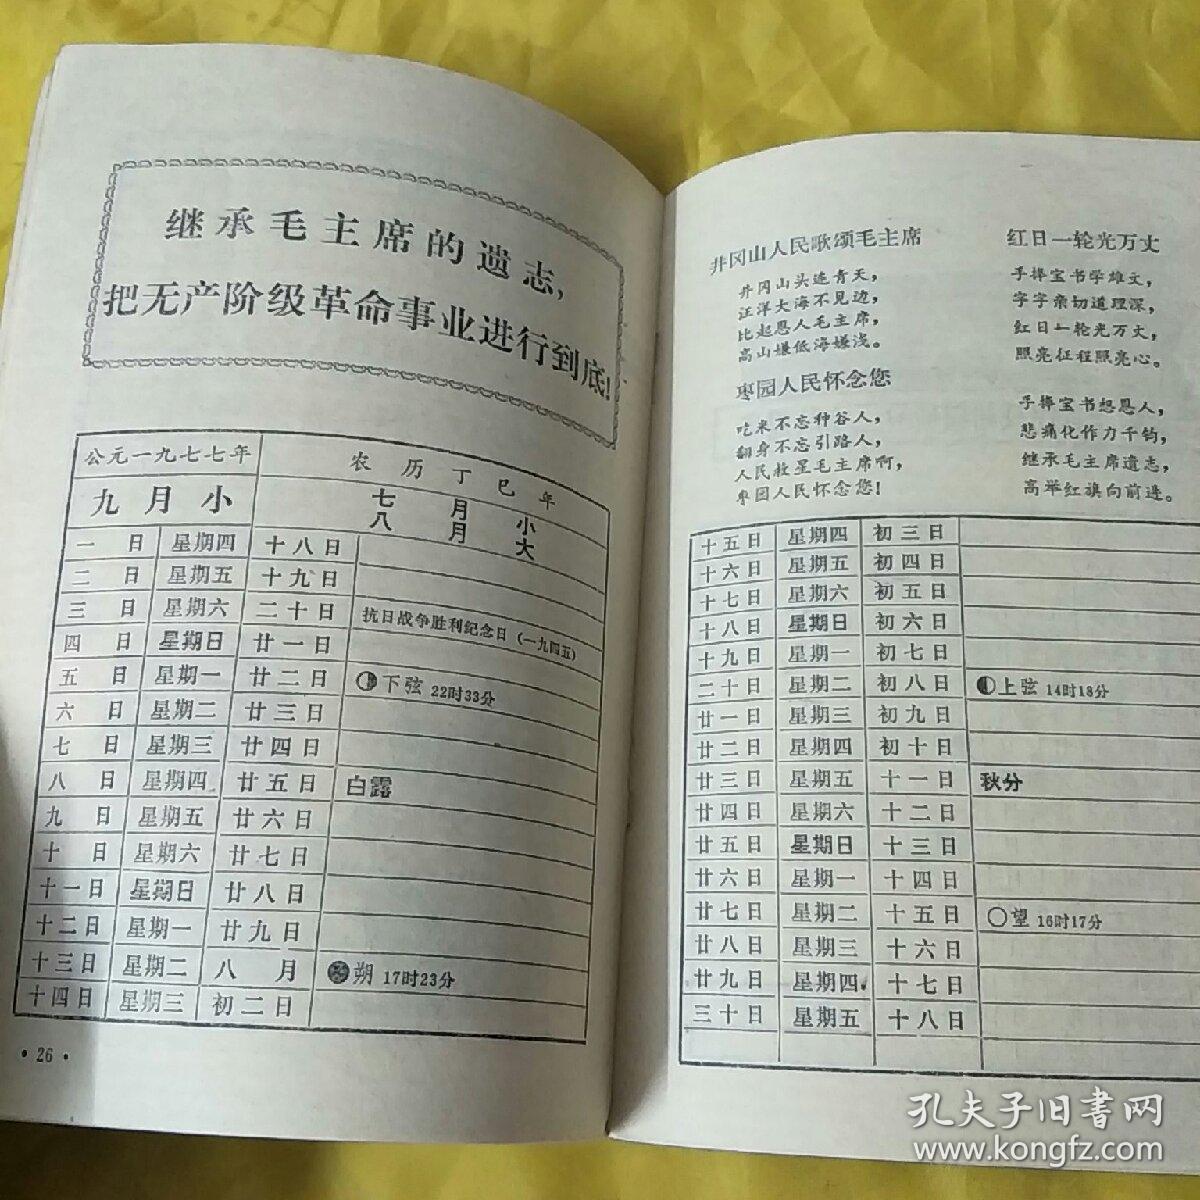 继承毛主席的遗志，
把无产阶级革命事业进行到底！
公元一九七七年 农历丁巳年
九月小 七月小
八月大
一日 星期四 十八日
二日 星期五 十九日
三日 星期六 二十日 抗日战争胜利纪念日（一九四五）
四日 星期日 廿一日
五日 星期一 廿二日 下弦 22时33分
六日 星期二 廿三日
七日 星期三 廿四日
八日 星期四 廿五日 白露
九日 星期五 廿六日
十日 星期六 廿七日
十一日 星期日 廿八日
十二日 星期一 廿九日
十三日 星期二 八月 朔 17时23分
十四日 星期三 初二日
· 26 ·
井冈山人民歌颂毛主席
井冈山头连青天，
汪洋大海不见边，
比起恩人毛主席，
高山嫌低海嫌浅。
枣园人民怀念您
吃米不忘种谷人，
翻身不忘引路人，
人民救星毛主席啊，
枣园人民怀念您！
红日一轮光万丈
手捧宝书学雄文，
字字亲切道理深，
红日一轮光万丈，
照亮征程照亮心。
手捧宝书想恩人，
悲痛化作力千钧，
继承毛主席遗志，
高举红旗向前进。
十五日 星期四 初三日
十六日 星期五 初四日
十七日 星期六 初五日
十八日 星期日 初六日
十九日 星期一 初七日
二十日 星期二 初八日 上弦 14时18分
廿一日 星期三 初九日
廿二日 星期四 初十日
廿三日 星期五 十一日 秋分
廿四日 星期六 十二日
廿五日 星期日 十三日
廿六日 星期一 十四日
廿七日 星期二 十五日 望 16时17分
廿八日 星期三 十六日
廿九日 星期四 十七日
三十日 星期五 十八日
孔夫子旧书网
www.kongfz.com